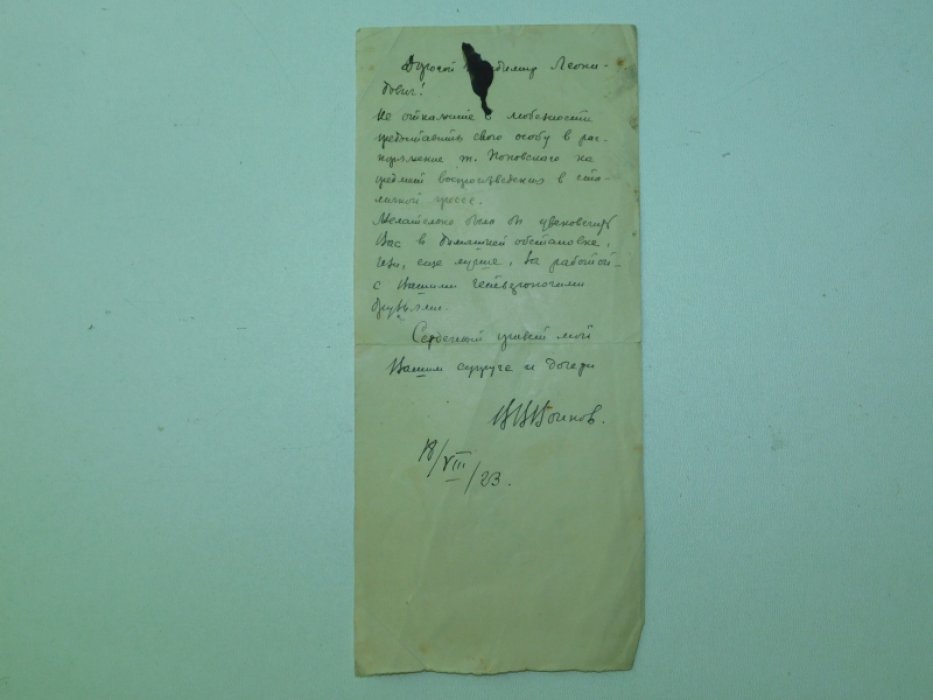 Дорогой Леони-
дович!
Не откажите в любезности
предоставить свою особу в рас-
поряжение т. Поповского на
предмет воспроизведения в сто-
личной прессе.
Желательно было бы увековечить
Вас в домашней обстановке,
или, еще лучше, за работой –
с Вашими четвероногими
друзьями.
Сердечный привет мой
Вашим супруге и дочери
18/VIII/23.